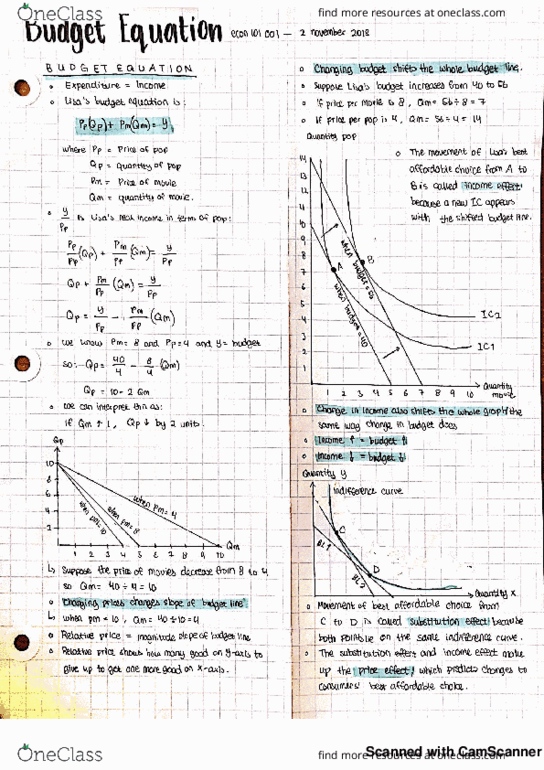 OneClass
find more resources at oneclass.com
Budget Equation econ 101 001 — 2 november 2018
BUDGET EQUATION
Expenditure = Income
Lisa's budget equation is:
Pp(Qp) + Pm(Qm) = y
where Pp = Price of pop
Qp = quantity of pop
Pm = Price of movie
Qm = quantity of movie.
y/Pp is Lisa's real income in term of pop:
Pp/Pp (Qp) + Pm/Pp (Qm) = y/Pp
Qp + Pm/Pp (Qm) = y/Pp
Qp = y/Pp - Pm/Pp (Qm)
we know Pm = 8 and Pp = 4 and y = budget
so: Qp = 40/4 - 8/4 (Qm)
Qp = 10 - 2 Qm
we can interpret this as:
if Qm ↑ 1, Qp ↓ by 2 units.
Qp
10
8
6
4
2
when pm = 4
when pm = 8
when pm = 10
1 2 3 4 5 6 7 8 9 10 Qm
↳ suppose the price of movies decrease from 8 to 4
so Qm = 40 ÷ 4 = 10
"Changing prices changes slope of budget line"
↳ when pm = 10, Qm = 40 ÷ 10 = 4
Relative price = magnitude slope of budget line
Relative price shows how many good on y-axis to
give up to get one more good on x-axis.
Changing budget shifts the whole budget line.
Suppose Lisa's budget increases from 40 to 56
if price per movie is 8, Qm = 56 ÷ 8 = 7
if price per pop is 4, Qm = 56 ÷ 4 = 14
Quantity pop
14
13
12
11
10
9
8
7
6
5
4
3
2
1
The movement of Lisa's best
affordable choice from A to
B is called income effect
because a new IC appears
with the shifted budget line.
A
B
when budget = 56
when budget = 40
IC2
IC1
1 2 3 4 5 6 7 8 9 10
Quantity movie
Change in income also shifts the whole graph the
same way change in budget does
Income ↑ = budget ↑
Income ↓ = budget ↓
Quantity y
indifference curve
C
D
BL1
BL2
Quantity x
Movement of best affordable choice from
C to D is called substitution effect because
both points lie on the same indifference curve.
The substitution effect and income effect make
up the price effect, which predicts changes to
consumers' best affordable choice.
OneClass
find more resources at oneclass.com
Scanned with CamScanner